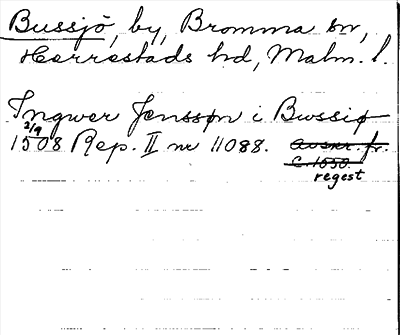 Bussjö, by, Bromma sn,
Herrestads hd, Malm. l.
Ingwer Jenssøn i Bwssiø
2/9
1508 Rep. II nr 11088. avskr. fr.
c. 1050.
regest